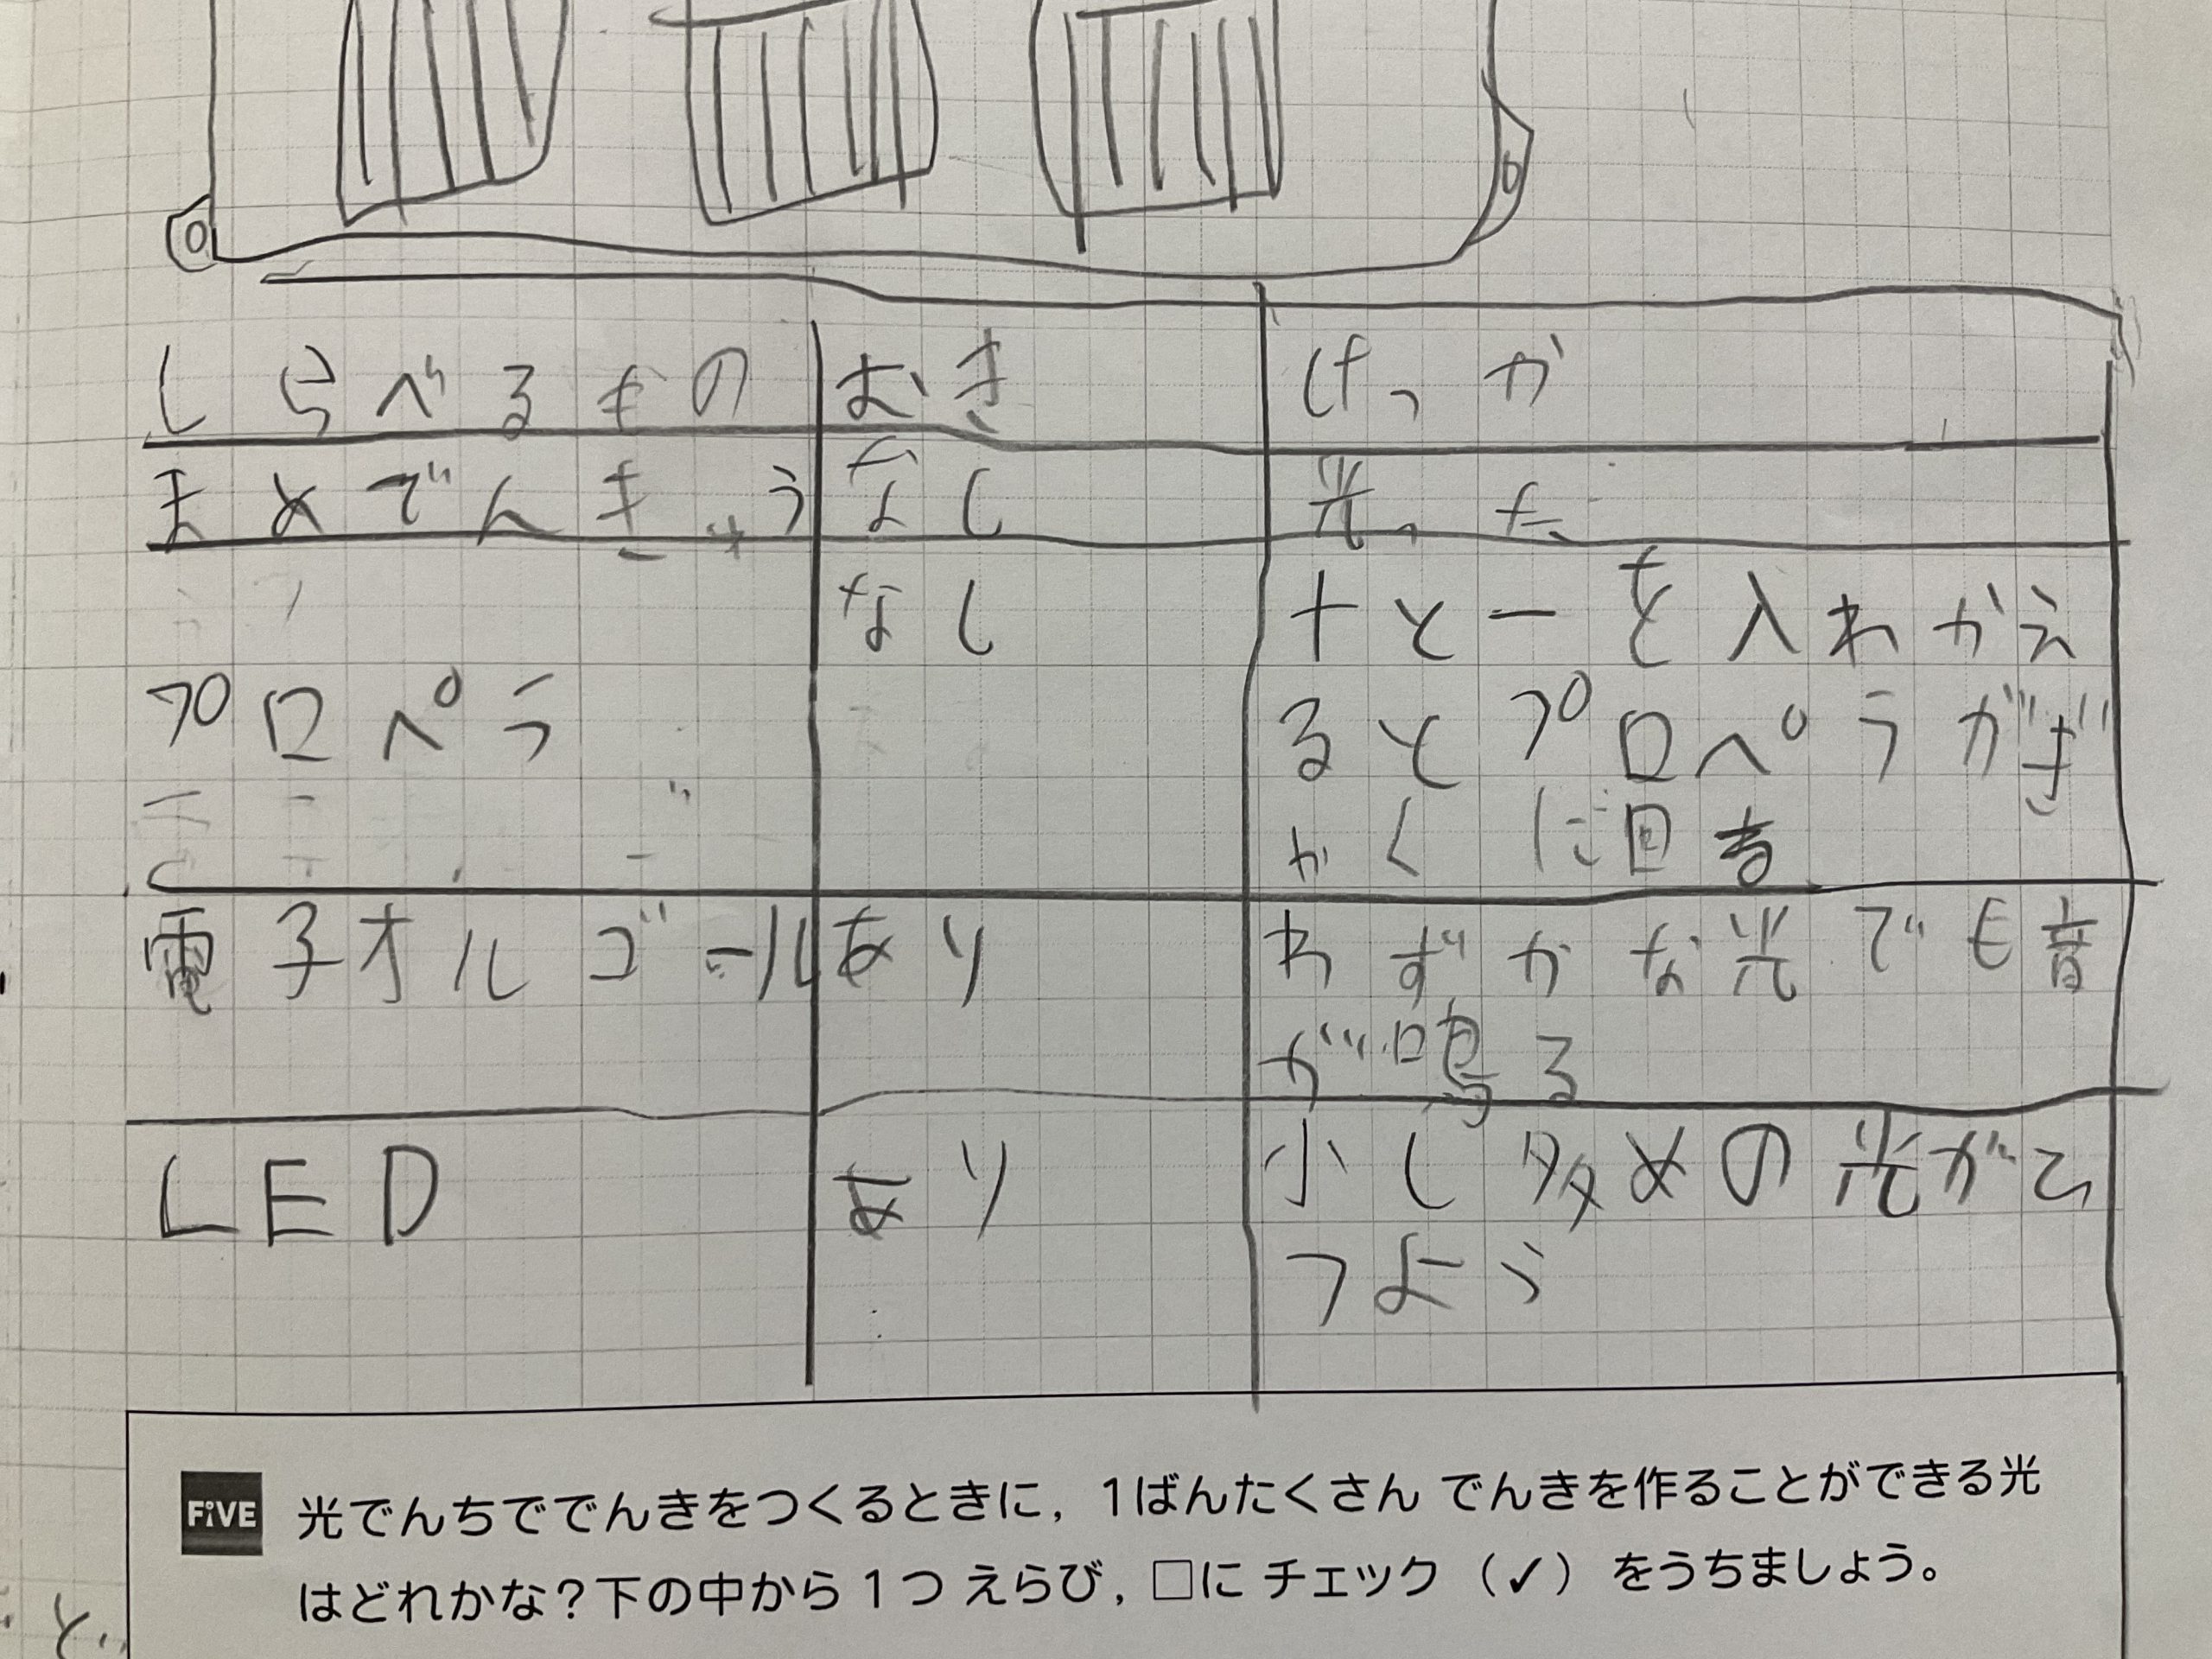 しらべるもの むき けっか
まめでんきゅう なし 光った
なし +と-を入れかえ
プロペラ るとプロペラがぎ
かくに回る
電子オルゴール あり わずかな光でも音
が鳴る
LED あり 少し多めの光がひ
つよう
FiVE 光でんちででんきをつくるときに，1ばんたくさん でんきを作ることができる光
はどれかな？下の中から1つ えらび，□に チェック（✓）をうちましょう。